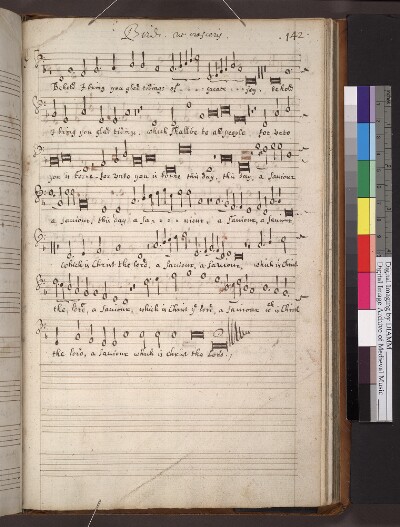 Bird. 142.
Behold I bring you glad tidings of great joy, behold
I bring you glad tidings, which shall be to all people for unto
you is borne, for unto you is borne this day, this day, a Saviour
a Saviour, this day a Saviour, a Saviour, a Saviour
which is Christ the lord, a Saviour, a Saviour, which is Christ
the lord, a Saviour, which is Christ ye lord, a Saviour wch is Christ
the lord, a Saviour which is christ the Lord.
Digital Imaging by DIAMM
Digital Image Archive of Medieval Music